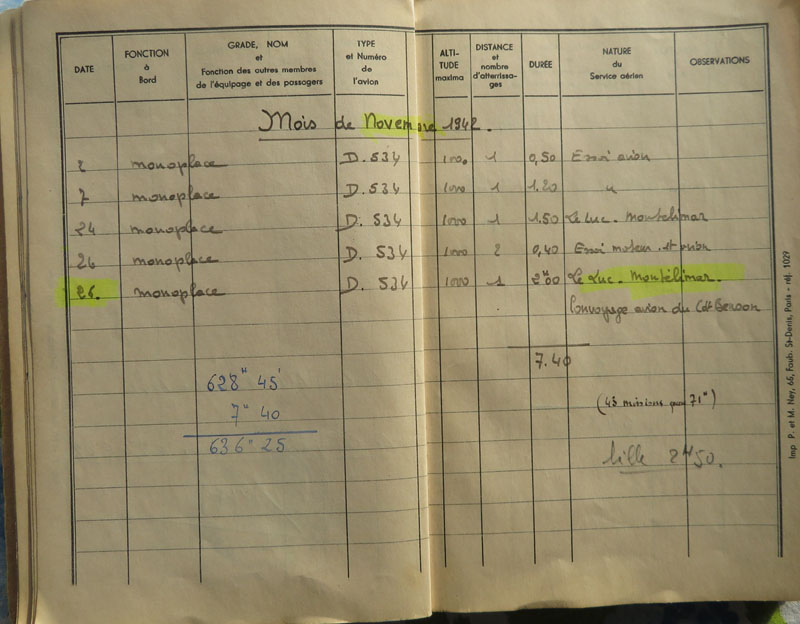 DATE FONCTION à Bord GRADE, NOM et Fonction des autres membres de l'équipage et des passagers TYPE et Numéro de l'avion ALTI-TUDE maxima DISTANCE et nombre d'atterrissa-ges DURÉE NATURE du Service aérien OBSERVATIONS
Mois de Novembre 1942.
2 monoplace D. 534 1000 1 0,50 Essai avion
7 monoplace D. 534 1000 1 1.20 "
24 monoplace D. 534 1000 1 1.50 Le Luc. Montelimar
26 monoplace D. 534 1000 2 0,40 Essai moteur et avion
26. monoplace D. 534 1000 1 2H00 Le Luc. Montélimar.
Convoyage avion du Cdt
7.40
628H 45'
7H 40
636H 25
(43 missions 71H)
Lille 2H50.
Imp P. et M. Ney, 65, Faub. St-Denis, Paris - réf. 1029